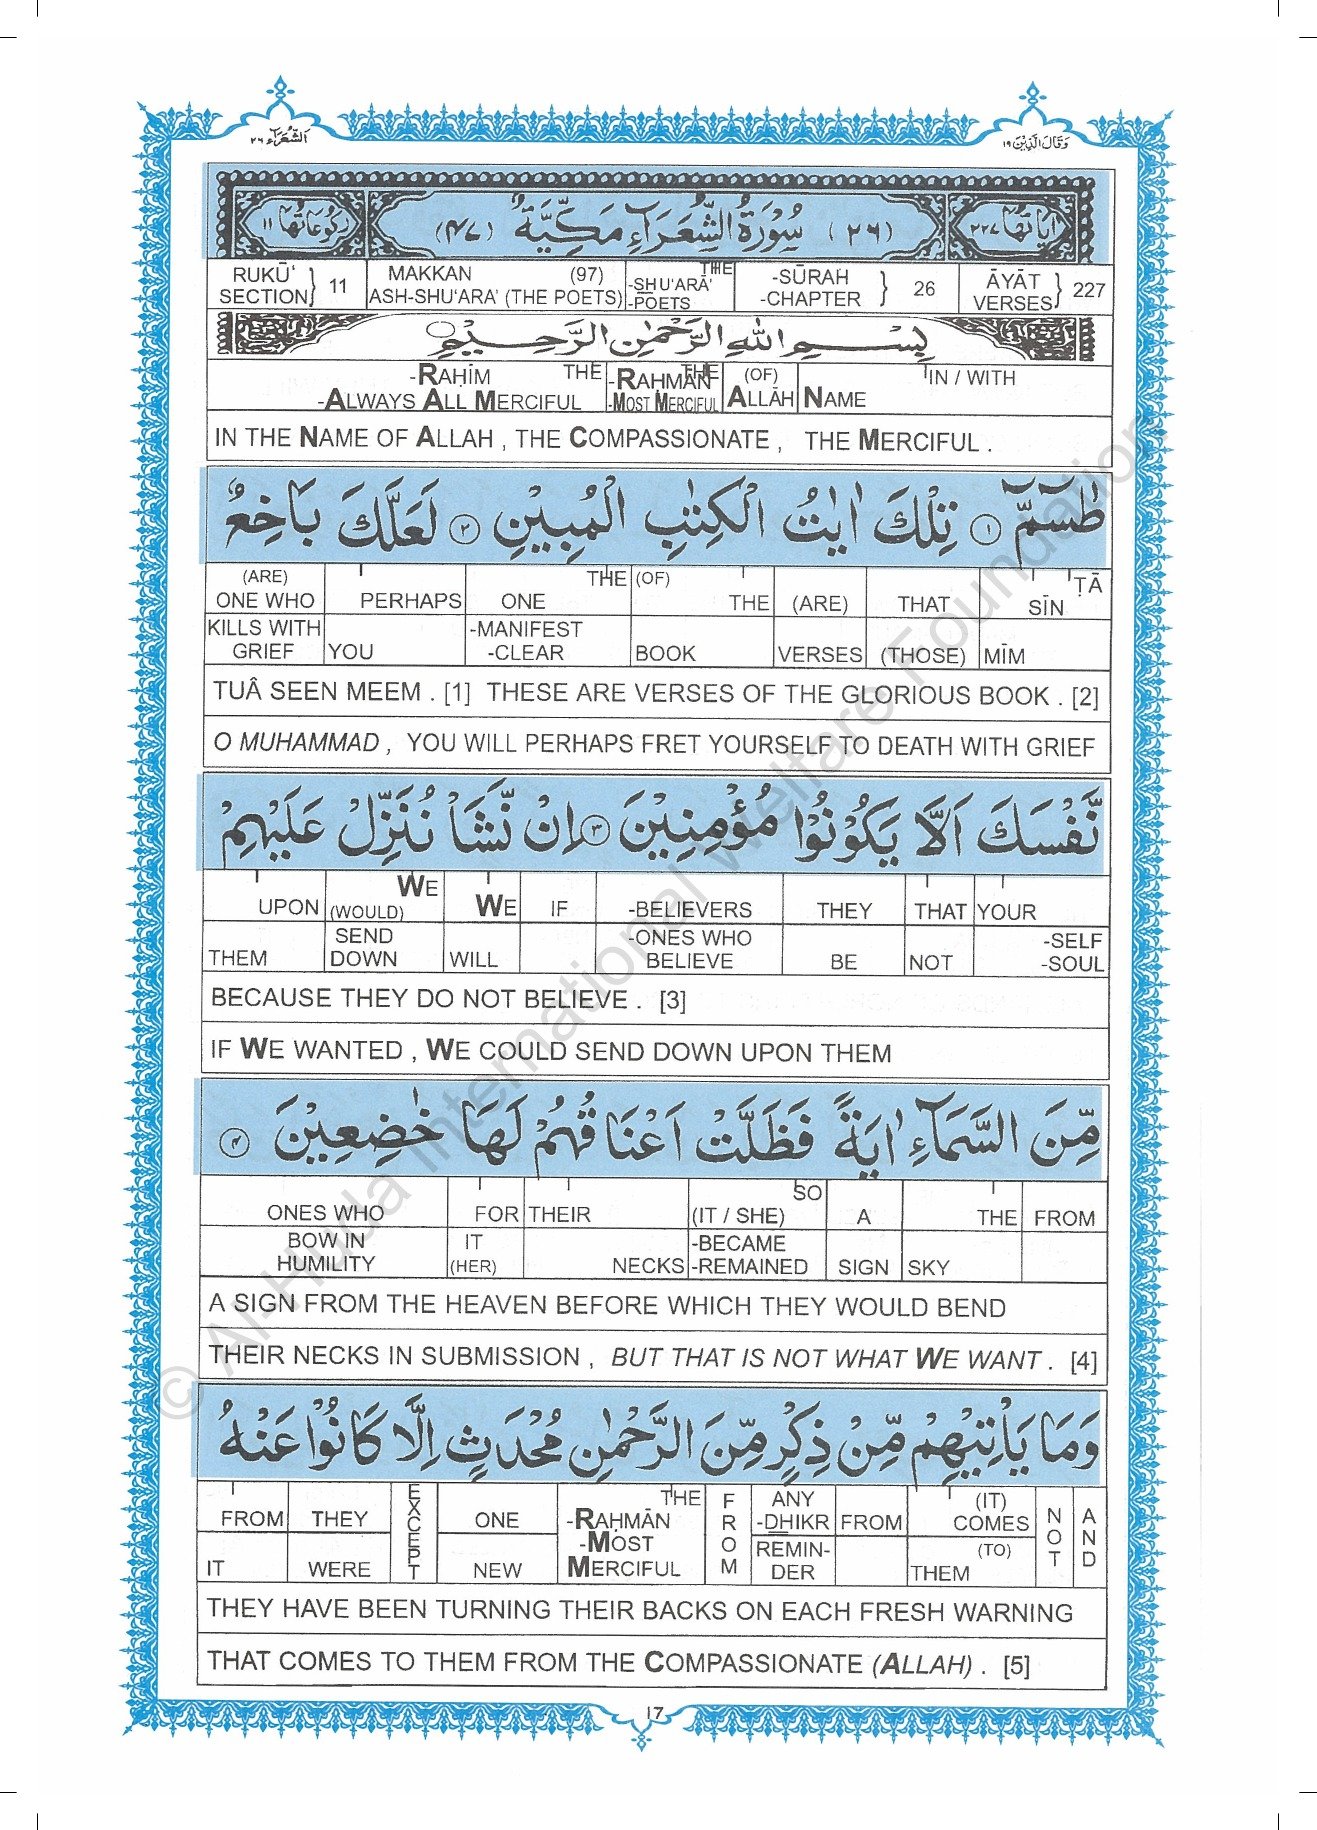 الشُّعَرَآء ٢٦
وَقَالَ الَّذِيْنَ ١٩
اٰيَاتُهَا ٢٢٧ (٢٦) سُوْرَةُ الشُّعَرَآءِ مَكِّيَّةٌ (٤٧) رُكُوْعَاتُهَا ١١
RUKŪ‘ SECTION } 11 MAKKAN (97) ASH-SHU‘ARA’ (THE POETS) THE -SHU‘ARĀ’ -POETS -SŪRAH -CHAPTER } 26 ĀYĀT VERSES } 227
بِسْمِ اللّٰهِ الرَّحْمٰنِ الرَّحِيْمِ
-RAḤĪM THE -RAHMĀN THE (OF) IN / WITH
-ALWAYS ALL MERCIFUL -MOST MERCIFUL ALLĀH NAME
IN THE NAME OF ALLAH , THE COMPASSIONATE , THE MERCIFUL .
طٰسٓمّٓ ١ تِلْكَ اٰيٰتُ الْكِتٰبِ الْمُبِيْنِ ٢ لَعَلَّكَ بَاخِعٌ
(ARE) ONE WHO PERHAPS THE ONE (OF) THE (ARE) THAT ṬĀ SĪN
KILLS WITH GRIEF YOU -MANIFEST -CLEAR BOOK VERSES (THOSE) MĪM
TUÂ SEEN MEEM . [1] THESE ARE VERSES OF THE GLORIOUS BOOK . [2]
O MUHAMMAD , YOU WILL PERHAPS FRET YOURSELF TO DEATH WITH GRIEF
نَّفْسَكَ اَلَّا يَكُوْنُوْا مُؤْمِنِيْنَ ٣ اِنْ نَّشَاْ نُنَزِّلْ عَلَيْهِمْ
UPON WE (WOULD) WE IF -BELIEVERS THEY THAT YOUR
THEM SEND DOWN WILL -ONES WHO BELIEVE BE NOT -SELF -SOUL
BECAUSE THEY DO NOT BELIEVE . [3]
IF WE WANTED , WE COULD SEND DOWN UPON THEM
مِّنَ السَّمَآءِ اٰيَةً فَظَلَّتْ اَعْنَاقُهُمْ لَهَا خٰضِعِيْنَ ٤
ONES WHO FOR THEIR SO (IT / SHE) A THE FROM
BOW IN HUMILITY IT (HER) NECKS -BECAME -REMAINED SIGN SKY
A SIGN FROM THE HEAVEN BEFORE WHICH THEY WOULD BEND
THEIR NECKS IN SUBMISSION , BUT THAT IS NOT WHAT WE WANT . [4]
وَمَا يَاْتِيْهِمْ مِّنْ ذِكْرٍ مِّنَ الرَّحْمٰنِ مُحْدَثٍ اِلَّا كَانُوْا عَنْهُ
FROM THEY EXCEPT ONE THE -RAḤMĀN FROM ANY -DHIKR FROM (IT) COMES NOT AND
IT WERE NEW -MOST MERCIFUL REMIN-DER (TO) THEM
THEY HAVE BEEN TURNING THEIR BACKS ON EACH FRESH WARNING
THAT COMES TO THEM FROM THE COMPASSIONATE (ALLAH) . [5]
17
© Al-Huda International Welfare Foundation